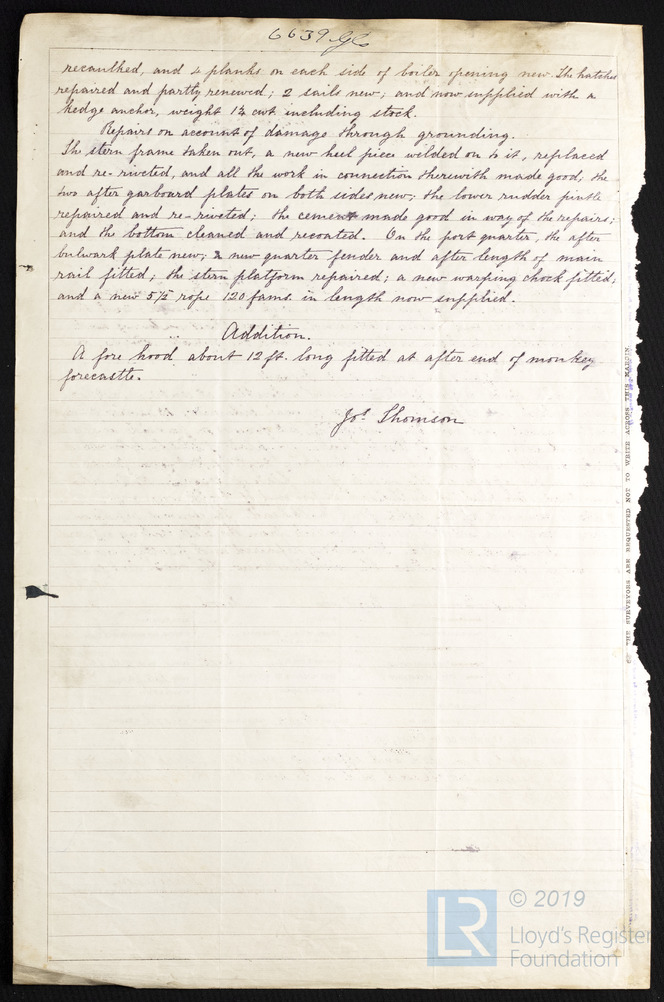 6639 Gls
recaulked, and 4 planks on each side of boiler opening new. The hatches
repaired and partly renewed; 2 sails new; and now supplied with a
kedge anchor, weight 1¼ cwt including stock.
Repairs on account of damage through grounding.
The stern frame taken out, a new heel piece wilded on to it, replaced
and re-riveted, and all the work in connection therewith made good, the
two after garboard plates on both sides new; the lower rudder pintle
repaired and re-riveted; the cement made good in way of the repairs;
and the bottom cleaned and recoated. On the port quarter, the after
bulwark plate new; a new quarter fender and after length of main
rail fitted; the stern platform repaired; a new warping chock fitted;
and a new 5½ rope 120 fams. in length now supplied.
Addition.
A fore hood about 12 ft. long fitted at after end of monkey
forecastle.
Jos. Thomson
THE SURVEYORS ARE REQUESTED NOT TO WRITE ACROSS THIS MARGIN.
LR
© 2019
Lloyd's Register
Foundation